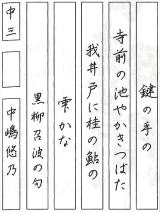 鍵の手の
寺前の池やかきつばた
我井戸に桂の鮎の
雫かな
黒柳召波の句
中三 中嶋悠乃